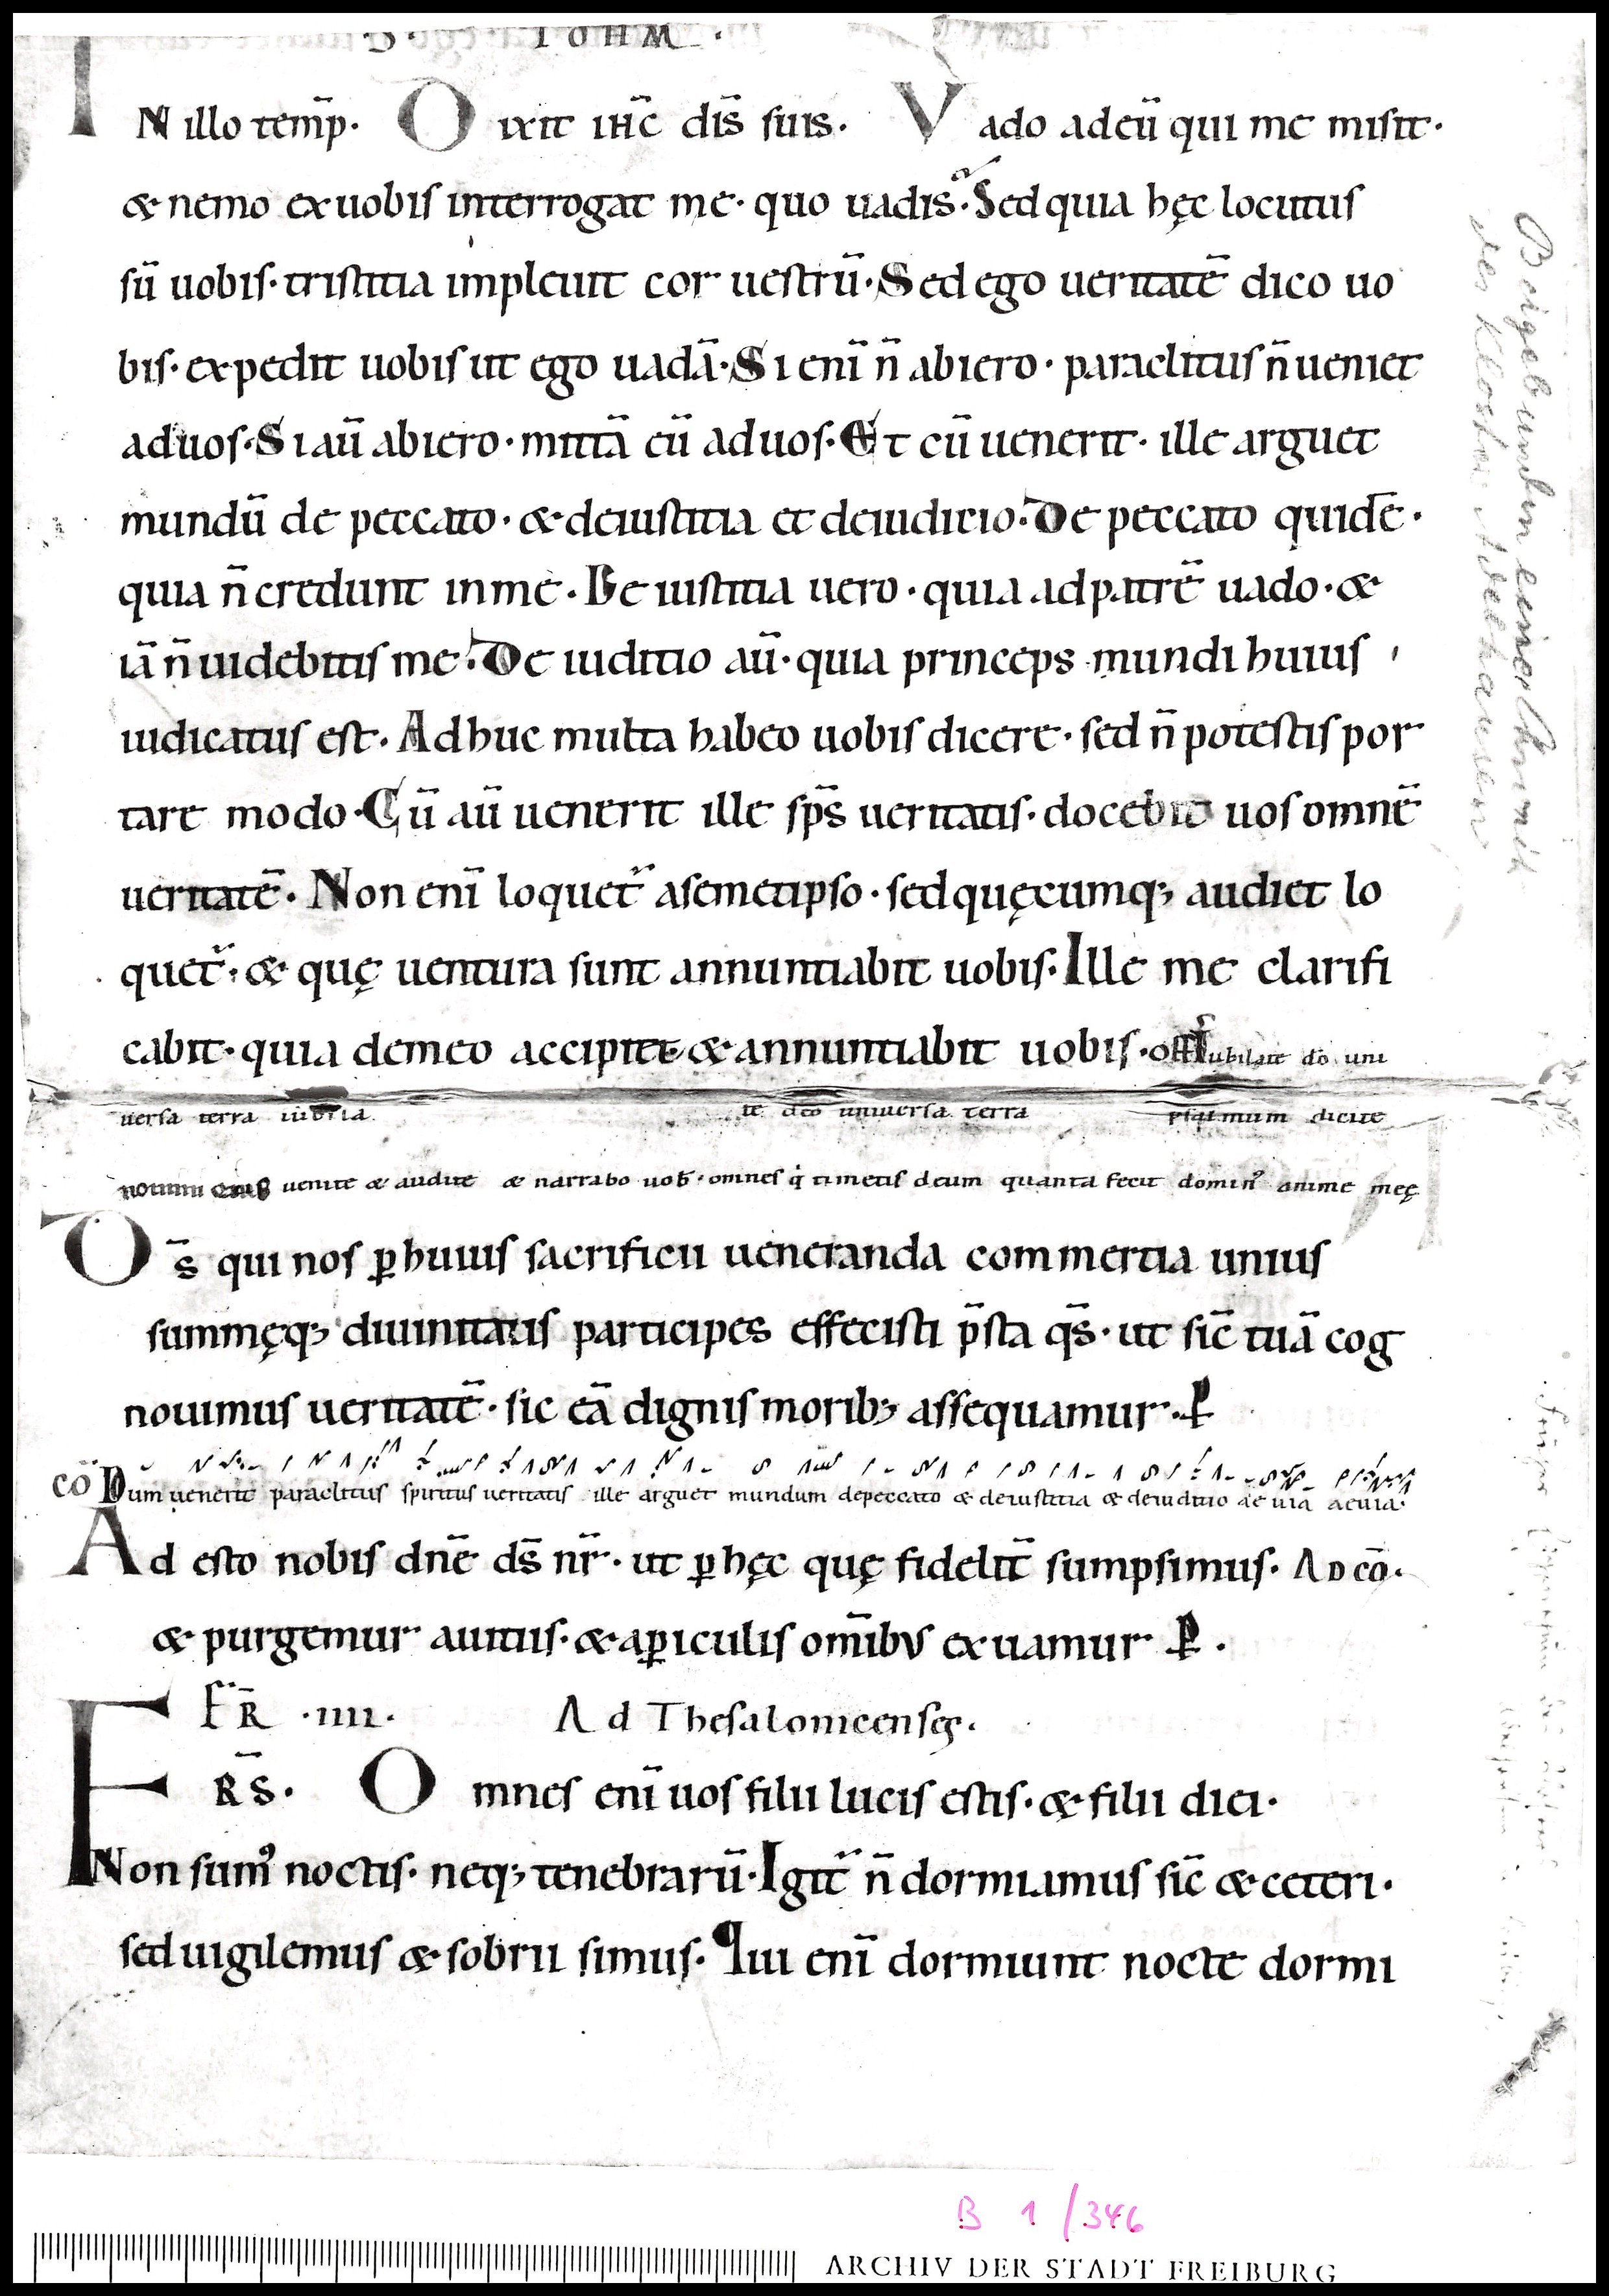 IOHM.
IN illo temp̄. Dixit ihc̄ dis̄ suis. Vado ad eū qui me misit.
& nemo ex uobis interrogat me. quo uadis. Sed quia hęc locutus
sū uobis. tristitia impleuit cor uestrū. Sed ego ueritatē dico uo
bis. expedit uobis ut ego uadā. Si enī n̄ abiero. paraclitus n̄ ueniet
ad uos. Si aū abiero. mittā eū ad uos. Et cū uenerit. ille arguet
mundū de peccato. & de iustitia et de iudicio. De peccato quidē.
quia n̄ credunt in me. De iustitia uero. quia ad patrē uado. &
iā n̄ uidebitis me. De iuditio aū. quia princeps mundi huius
iudicatus est. Adhuc multa habeo uobis dicere. sed n̄ potestis por
tare modo. Cū aū uenerit ille sp̄s ueritatis. docebit uos omnē
ueritatē. Non enī loquet̄ a semetipso. sed quęcumq; audiet lo
quet̄. & quę uentura sunt annuntiabit uobis. Ille me clarifi
cabit. quia de meo accipiet & annuntiabit uobis. Off Iubilate dō uni
uersa terra iubila te deo uniuersa terra psalmum dicite
nomini eius uenite & audite & narrabo uob̄. omnes q̇ timetis deum quanta fecit domin᾽ anime meę
Ds̄ qui nos ꝑ huius sacrificii ueneranda commertia unius
summęq; diuinitatis participes effecisti p̄sta qs̄. ut sic̄ tuā cog
nouimus ueritatē. sic eā dignis morib; assequamur. P
CŌ Dum uenerit paraclitus spiritus ueritatis ille arguet mundum de peccato & de iustitia & de iuditio aeuia aeuia.
Ad esto nobis dn̄e ds̄ nr̄. ut ꝑ hęc quę fidelit̄ sumpsimus. AD CŌ.
& purgemur a uitiis. & a ꝑiculis om̄ibus exuamur P.
FR̄ .IIII. Ad Thesalonicenses.
FRS̄. Omnes enī uos filii lucis estis. & filii diei.
Non sum᾽ noctis. neq; tenebrarū. Igit̄ n̄ dormiamus sic̄ & ceteri.
sed uigilemus & sobrii simus. Qui enī dormiunt nocte dormi
B 1/346
ARCHIV DER STADT FREIBURG